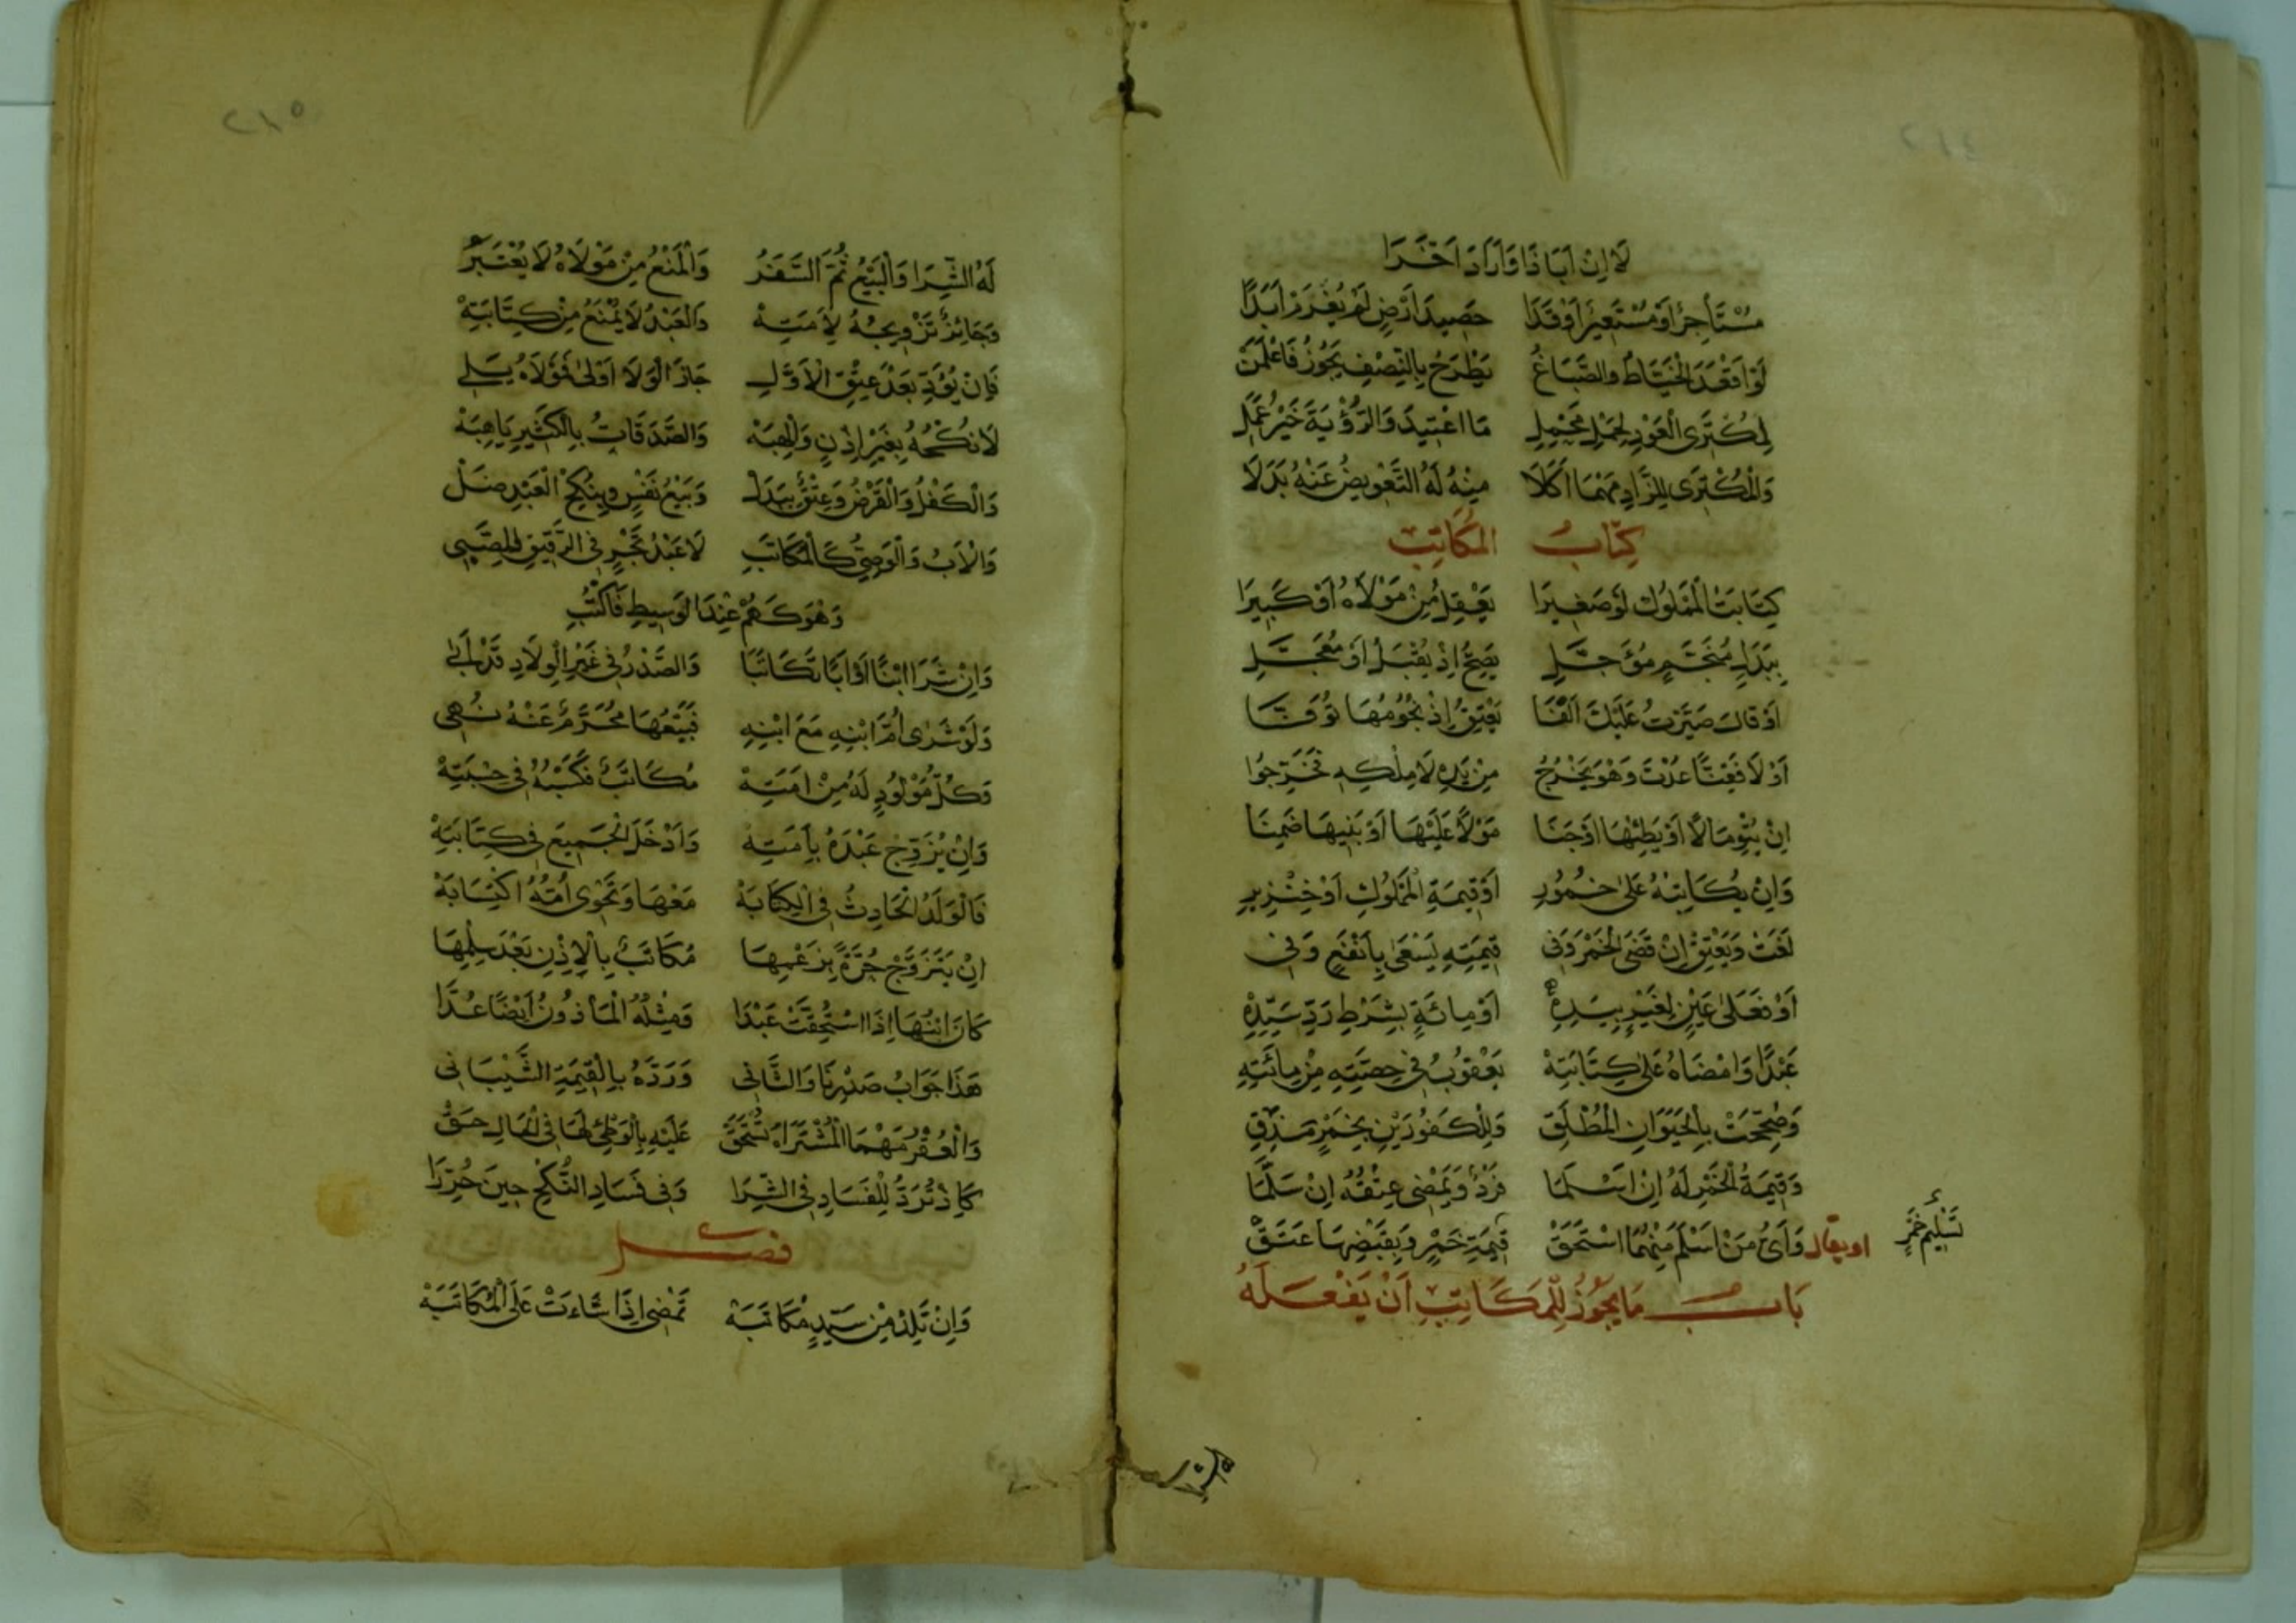 ٢١٤
لَا اِنْ اَبَا ذَا وَاَرَادَ اَخَرَا
مُسْتَأجِرٌ اَوْ مُسْتَعِيرٌ اَوْقَدَا حَصِيدَ اَرْضٍ لَمْ يُغَرَّمْ اَبَدًا
لَوْ اَقْعَدَ الْخَيَّاطُ وَالصَّبَاغُ يَطْرَحُ بِالنِّصْفِ يَجُوزُ فَاعْلَمَنْ
لِمُكْتَرِى الْعَوْدِ لِحَمْلِ مَحْمِلِ مَا اعْتِيدَ وَالرُّؤْيَةُ خَيْرُ عَمَلِ
وَالْمُكْتَرِى لِلزَّادِ مَهْمَا اَكَلَا مِنْهُ لَهُ التَّعْوِيضُ عَنْهُ بَدَلَا
كِتَابُ المُكَاتَبِ
كِتَابَتُ الْمَمْلُوكِ لَوْ صَغِيرَا يَعْقِلُ مِنْ مَوْلَاهُ اَوْ كَبِيرَا
بِبَدَلٍ مُنَجَّمٍ مُؤَجَّلِ يَصِحُّ اِذْ يُقْبَلُ اَوْ مُعَجَّلِ
اَوْ قَالَ صَيَّرْتُ عَلَيْكَ اَلْفَا يَعْتِقُ اِذْ نُجُومُهَا تُوُفَّا
اَوْ لَا فَقِنًّا عُدْتَ وَهْوَ يَخْرُجُ مِنْ يَدِهِ لَا مِلْكِهِ فَخَرِّجُوا
اِنْ يُتْوِ مَالًا اَوْ يَطِئْهَا اَوْ جَنَا مَوْلًا عَلَيْهَا اَوْ بَنِيهَا ضَمِنَا
وَاِنْ يُكَاتِبْهُ عَلَى خُمُورِ اَوْ قِيمَةِ الْمَمْلُوكِ اَوْ خِنْزِيرِ
لَغَتْ وَيَعْتِقْ اِنْ قَضَى الْخَمْرَ وَفِى قِيمَتِهِ يَسْعَى بِاَنْفَعٍ وَفِى
اَوْ فَعَلَى عَيْنٍ لِغَيْرٍ بِيَدِهْ اَوْ مِائَةٍ بِشَرْطِ رَدِّ سَيِّدِهْ
عَبْدًا وَاَمْضَاهُ عَلَى كِتَابَتِهْ يَعْقُوبُ فِى حِصَّتِهِ مِنْ مِائَتِهِ
وَصُحِّحَتْ بِالْحَيَوَانِ الْمُطْلَقِ وَلِلْكَفُورَيْنِ بِخَمْرٍ مَذِقِ
وَقِيمَةُ الْخَمْرِ لَهُ اِنْ اَسْلَمَا فَرْدٌ وَيَمْضِى عِتْقُهُ اِنْ سَلَّمَا
وَاَىُّ مَنْ اَسْلَمَ مِنْهُمَا اسْتَحَقّْ قِيمَةَ خَمْرٍ وَبِقَبْضِهَا عَتَقْ
او يقال
تَسْلِيمُ خَمْرٍ
بَابُ مَا يَجُوزُ لِلْمُكَاتَبِ اَنْ يَفْعَلَهُ
٢١٥
لَهُ الشِّرَا وَالْبَيْعُ ثُمَّ السَّفَرُ وَالْمَنْعُ مِنْ مَوْلَاهُ لَا يُعْتَبَرُ
وَجَائِزٌ تَزْوِيجُهُ لِاَمَتِهْ وَالْعَبْدُ لَا يُمْنَعُ مِنْ كِتَابَتِهْ
فَاِنْ يُؤَدِّ بَعْدَ عِتْقِ الْاَوَّلِ جَازَ الْوَلَا اَوْلَى فَوَلَاهُ يَلِى
لَا نُكْحُهُ بِغَيْرِ اِذْنٍ وَالْهِبَهْ وَالصَّدَقَاتُ بِالْكَثِيرِ يَاهِبَهْ
وَالْكَفْلُ وَالْقَرْضُ وَعِتْقٌ بِبَدَلْ وَبَيْعُ نَفْسٍ وَبِنُكْحِ الْعَبْدِ ضَلّْ
وَالْاَبُ وَالْوَصِىُّ كَالْمُكَاتَبِ لَا عَبْدُ تَجْرٍ فِى الرَّقِيقِ لِلصَّبِى
وَهْوَ كَهُمْ عِنْدَ الْوَسِيطِ فَاكْتُبِ
وَاِنْ شَرَا ابْنًا اَوْ اَبًا تَكَاتَبَا وَالصَّدْرُ فِى غَيْرِ الْوِلَادِ قَدْ اَبَى
وَلَوْ شَرَى اُمَّ ابْنِهِ مَعَ ابْنِهِ فَبَيْعُهَا مُحَرَّمٌ عَنْهُ نُهِى
وَكُلُّ مَوْلُودٍ لَهُ مِنْ اَمَتِهْ مُكَاتَبٌ فَكَسْبُهُ فِى حِيبَتِهْ
وَاِنْ يُزَوِّجْ عَبْدَهُ بِاَمَتِهْ وَاَدْخَلَ الْجَمِيعَ فِى كِتَابَتِهْ
فَالْوَلَدُ الْحَادِثُ فِى الْكِتَابَهْ مَعْهَا وَتَحْوِى اُمُّهُ اكْتِسَابَهْ
اِنْ يَتَزَوَّجْ حُرَّةً بِزَعْمِهَا مُكَاتَبٌ بِالْاِذْنِ بَعْدَ سِلْمِهَا
كَانَ ابْنُهَا اِذَا اسْتُحِقَّتْ عَبْدَا وَمِثْلُهُ الْمَأذُونُ اَيْضًا عُدَّا
هَذَا جَوَابُ صَدْرِنَا وَالثَّانِى وَرَدَّهُ بِالْقِيمَةِ الشَّيْبَانِى
وَالْعُقْرُ مَهْمَا الْمُشْتَرَاةُ تُسْتَحَقّْ عَلَيْهِ بِالْوَطْىِ لَهَا فِى الْحَالِ حَقّْ
كَاِذْ تُرَدُّ لِلْفَسَادِ فِى الشِّرَا وَفِى فَسَادِ النُّكْحِ حِينَ حُرِّرَا
فصل
وَاِنْ تَلِدْ مِنْ سَيِّدٍ مُكَاتَبَهْ تَمْضِى اِذَا شَاءَتْ عَلَى الْمُكَاتَبَهْ